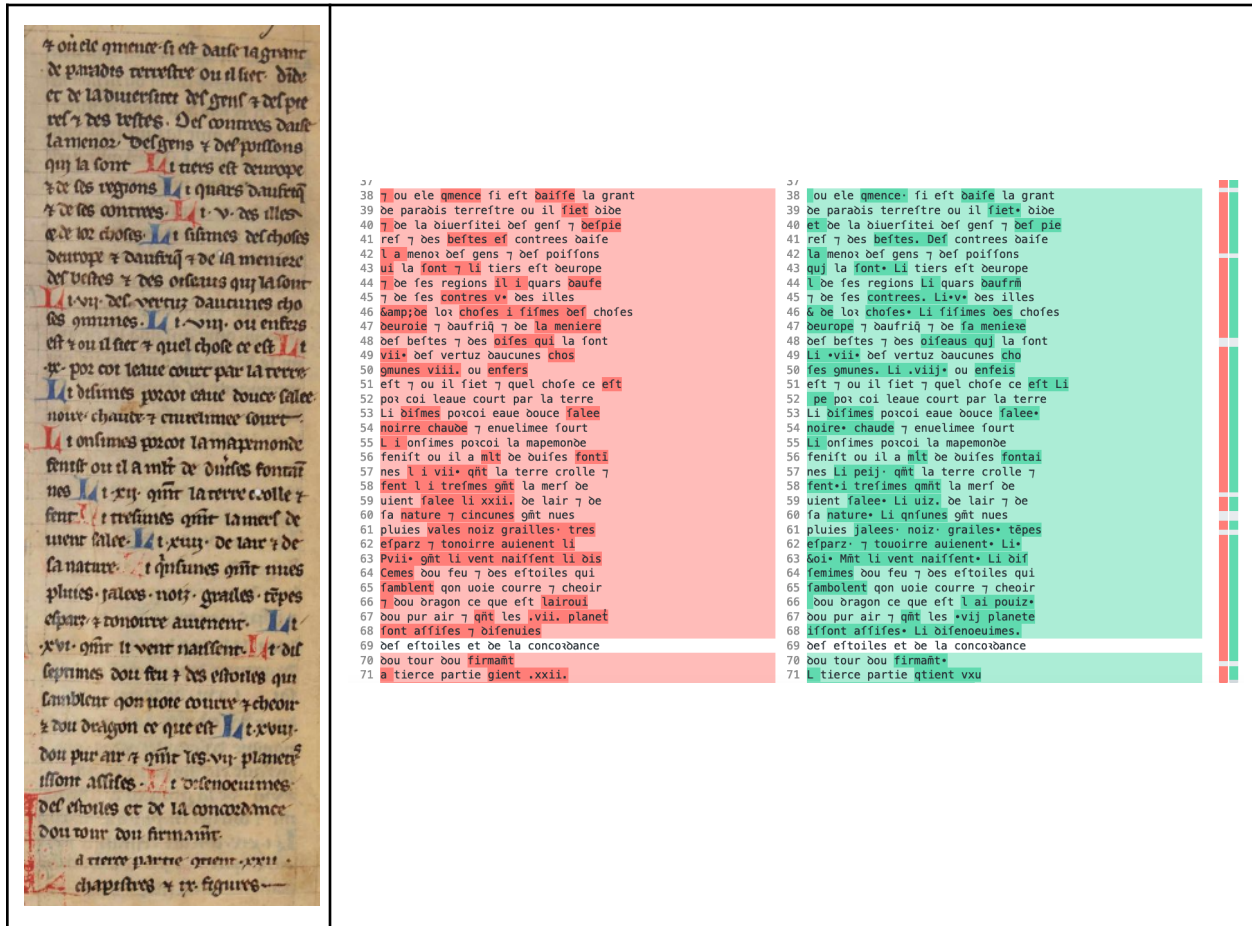 ⁊ ou ele qmence· si est daise la grant
de paradis terrestre ou il siet· dide
et de la diuersitei des gens ⁊ des pie
res ⁊ des bestes. Des contrees daise
la menor· Des gens ⁊ des poissons
qui la sont Li tiers est deurope
⁊ de ses regions Li quars daufriq̃
⁊ de ses contrees. Li·v· des illes
⁊ de lor choses· Li sisimes des choses
deurope ⁊ daufriq̃ ⁊ de la meniere
des bestes ⁊ des oiseaus qui la sont
Li·vii· des vertuz daucunes cho
ses qmunes. Li·viii· ou enfers
est ⁊ ou il siet ⁊ quel chose ce est Li
·ix· por coi leaue court par la terre
Li disimes porcoi eaue douce salee·
noire· chaude ⁊ enuelimee sourt
Li onsimes porcoi la mapemonde
fenist ou il a mlt̃ de duises fontai
nes Li·xii· qm̃t la terre crolle ⁊
fent· Li tresimes qm̃t la mers de
uient salee· Li·xiiii· de lair ⁊ de
sa nature· Li qinsunes qm̃t nues
pluies· jalees· noiz· grailes· tẽpes
esparz· ⁊ tonoirre auienent· Li
·xvi· qm̃t li vent naissent· Li dis
septimes dou feu ⁊ des estoiles qui
samblent qon uoie courre ⁊ cheoir
⁊ dou dragon ce que est Li·xviii·
dou pur air ⁊ qm̃t les·vii· planetes
issont assises· Li disenoeuimes·
des estoiles et de la concordance
dou tour dou firmam̃t·
a tierce partie qtient·xxii·
chapistres ⁊ ix· figures
37
38 ⁊ ou ele qmence ſi eſt ꝺaiſſe la grant
39 ꝺe paraꝺis terreſtre ou il ſiet ꝺiꝺe
40 ⁊ ꝺe la ꝺiuerſitei ꝺeſ genſ ⁊ ꝺeſpie
41 reſ ⁊ ꝺes beſtes eſ contrees ꝺaiſe
42 l a menoꝛ ꝺeſ gens ⁊ ꝺeſ poiſſons
43 ui la ſont ⁊ li tiers eſt ꝺeurope
44 ⁊ ꝺe ſes regions il i quars ꝺaufe
45 ⁊ ꝺe ſes contres v• ꝺes illes
46 &amp;ꝺe loꝛ choſes i ſiſimes ꝺeſ choſes
47 ꝺeuroie ⁊ ꝺaufriq̃ ⁊ ꝺe la meniere
48 ꝺeſ beſtes ⁊ ꝺes oiſes qui la ſont
49 vii• ꝺeſ vertuz ꝺaucunes chos
50 qmunes viii. ou enfers
51 eſt ⁊ ou il ſiet ⁊ quel choſe ce eſt
52 poꝛ coi leaue court par la terre
53 Li ꝺiſmes poꝛcoi eaue ꝺouce ſalee
54 noirre chauꝺe ⁊ enuelimee ſourt
55 L i onſimes poꝛcoi la mapemonꝺe
56 feniſt ou il a mlt ꝺe ꝺuiſes fonti
57 nes l i vii• qm̃t la terre crolle ⁊
58 ſent l i treſmes gm̃t la merſ ꝺe
59 uient ſalee li xxii. ꝺe lair ⁊ ꝺe
60 ſa nature ⁊ cincunes gm̃t nues
61 pluies vales noiz grailles· tres
62 eſparz ⁊ tonoirre auienent li
63 Pvii• gm̃t li vent naiſſent li ꝺis
64 Cemes ꝺou feu ⁊ ꝺes eſtoiles qui
65 ſamblent qon uoie courre ⁊ cheoir
66 ⁊ ꝺou ꝺragon ce que eſt lairoui
67 ꝺou pur air ⁊ qm̃t les .vii. planet
68 ſont aſſiſes ⁊ ꝺiſenuies
69 ꝺeſ eſtoiles et ꝺe la concoꝛꝺance
70 ꝺou tour ꝺou firmam̃t
71 a tierce partie gient .xxii.
37
38 ou ele qmence· ſi eſt ꝺaiſſe la grant
39 ꝺe paraꝺis terreſtre ou il ſiet• ꝺiꝺe
40 et ꝺe la ꝺiuerſitei ꝺeſ genſ ⁊ ꝺeſ pie
41 reſ ⁊ ꝺes beſtes. Deſ contrees ꝺaiſe
42 la menoꝛ ꝺeſ gens ⁊ ꝺeſ poiſſons
43 quj la ſont• Li tiers eſt ꝺeurope
44 l ꝺe ſes regions Li quars ꝺaufrm̃
45 ⁊ ꝺe ſes contrees. Li•v• ꝺes illes
46 & ꝺe loꝛ choſes• Li ſiſimes ꝺes choſes
47 ꝺeurope ⁊ ꝺaufriq̃ ⁊ ꝺe ſa menieꝛe
48 ꝺeſ beſtes ⁊ ꝺes oiſeaus quj la ſont
49 Li •vii• ꝺeſ vertuz ꝺaucunes cho
50 ſes qmunes. Li .viij• ou enfeis
51 eſt ⁊ ou il ſiet ⁊ quel choſe ce eſt Li
52 pe poꝛ coi leaue court par la terre
53 Li ꝺiſimes poꝛcoi eaue ꝺouce ſalee•
54 noire• chauꝺe ⁊ enuelimee ſourt
55 Li onſimes poꝛcoi la mapemonꝺe
56 feniſt ou il a mlt ꝺe ꝺuiſes fontai
57 nes Li peij· qm̃t la terre crolle ⁊
58 ſent•i treſimes qmm̃t la merſ ꝺe
59 uient ſalee• Li uiz. ꝺe lair ⁊ ꝺe
60 ſa nature• Li qnſunes gm̃t nues
61 pluies jalees· noiz· grailes• tẽpes
62 eſparz· ⁊ touoirre auienent• Li•
63 &oi• Mm̃t li vent naiſſent• Li ꝺiſ
64 ſemimes ꝺou feu ⁊ ꝺes eſtoiles qui
65 ſambolent qon uoie courre ⁊ cheoir
66 ꝺou ꝺragon ce que eſt l ai pouiz•
67 ꝺou pur air ⁊ qm̃t les •vij planete
68 iſſont aſſiſes• Li ꝺiſenoeuimes.
69 ꝺeſ eſtoiles et ꝺe la concoꝛꝺance
70 ꝺou tour ꝺou firmam̃t•
71 L tierce partie qtient vxu